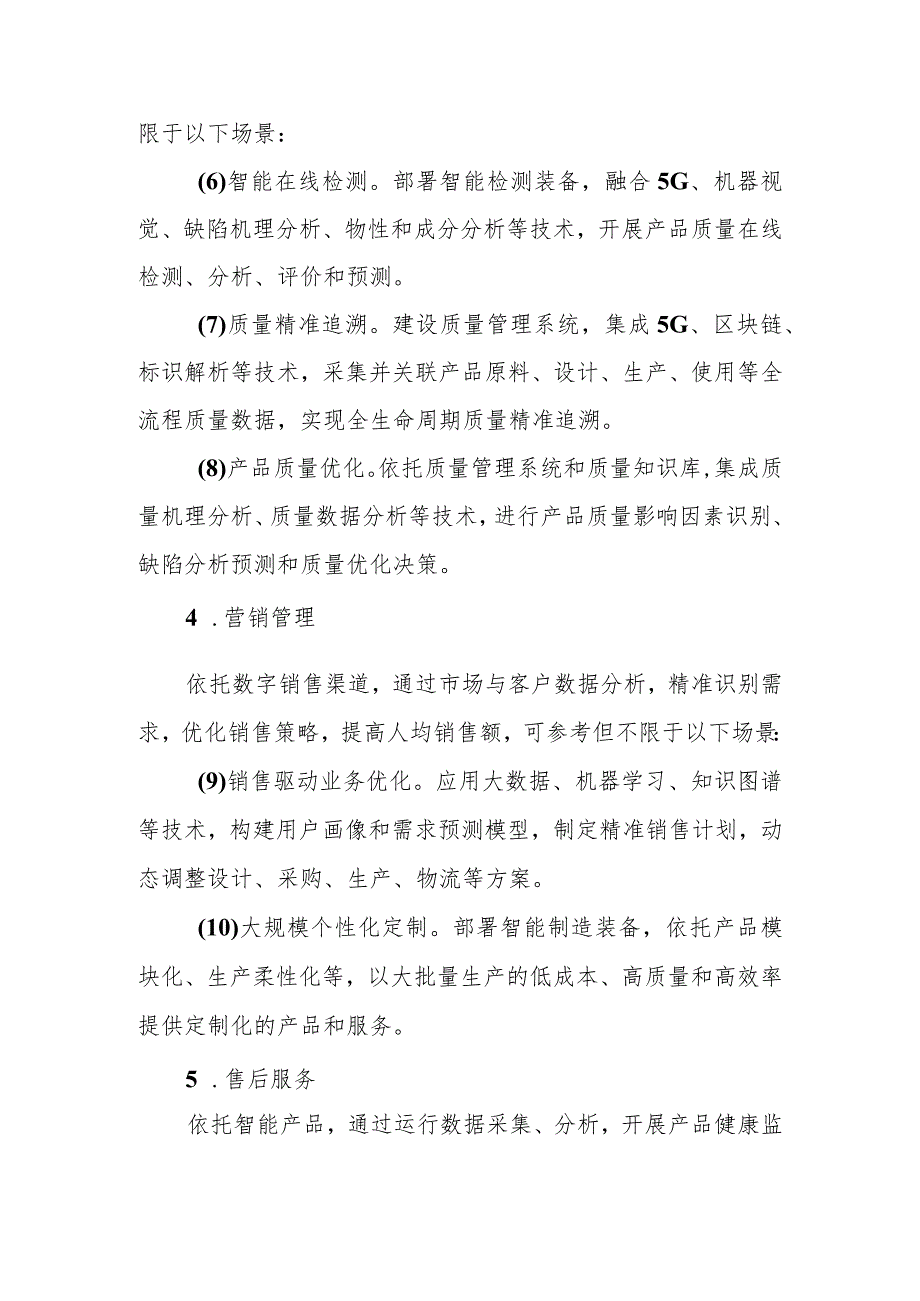 限于以下场景：
(6)智能在线检测。部署智能检测装备，融合5G、机器视
觉、缺陷机理分析、物性和成分分析等技术，开展产品质量在线
检测、分析、评价和预测。
(7)质量精准追溯。建设质量管理系统，集成5G、区块链、
标识解析等技术，采集并关联产品原料、设计、生产、使用等全
流程质量数据，实现全生命周期质量精准追溯。
(8)产品质量优化。依托质量管理系统和质量知识库,集成质
量机理分析、质量数据分析等技术，进行产品质量影响因素识别、
缺陷分析预测和质量优化决策。
4 .营销管理
依托数字销售渠道，通过市场与客户数据分析，精准识别需
求，优化销售策略，提高人均销售额，可参考但不限于以下场景：
(9)销售驱动业务优化。应用大数据、机器学习、知识图谱
等技术，构建用户画像和需求预测模型，制定精准销售计划，动
态调整设计、采购、生产、物流等方案。
(10)大规模个性化定制。部署智能制造装备，依托产品模
块化、生产柔性化等，以大批量生产的低成本、高质量和高效率
提供定制化的产品和服务。
5 .售后服务
依托智能产品，通过运行数据采集、分析，开展产品健康监